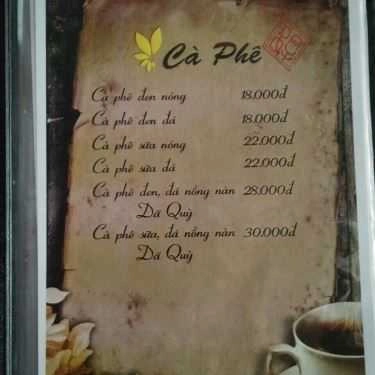 Cà Phê
Cà phê đen nóng 18.000đ
Cà phê đen đá 18.000đ
Cà phê sữa nóng 22.000đ
Cà phê sữa đá 22.000đ
Cà phê đen, đá nồng nàn 28.000đ
Dã Quỳ
Cà phê sữa, đá nồng nàn 30.000đ
Dã Quỳ